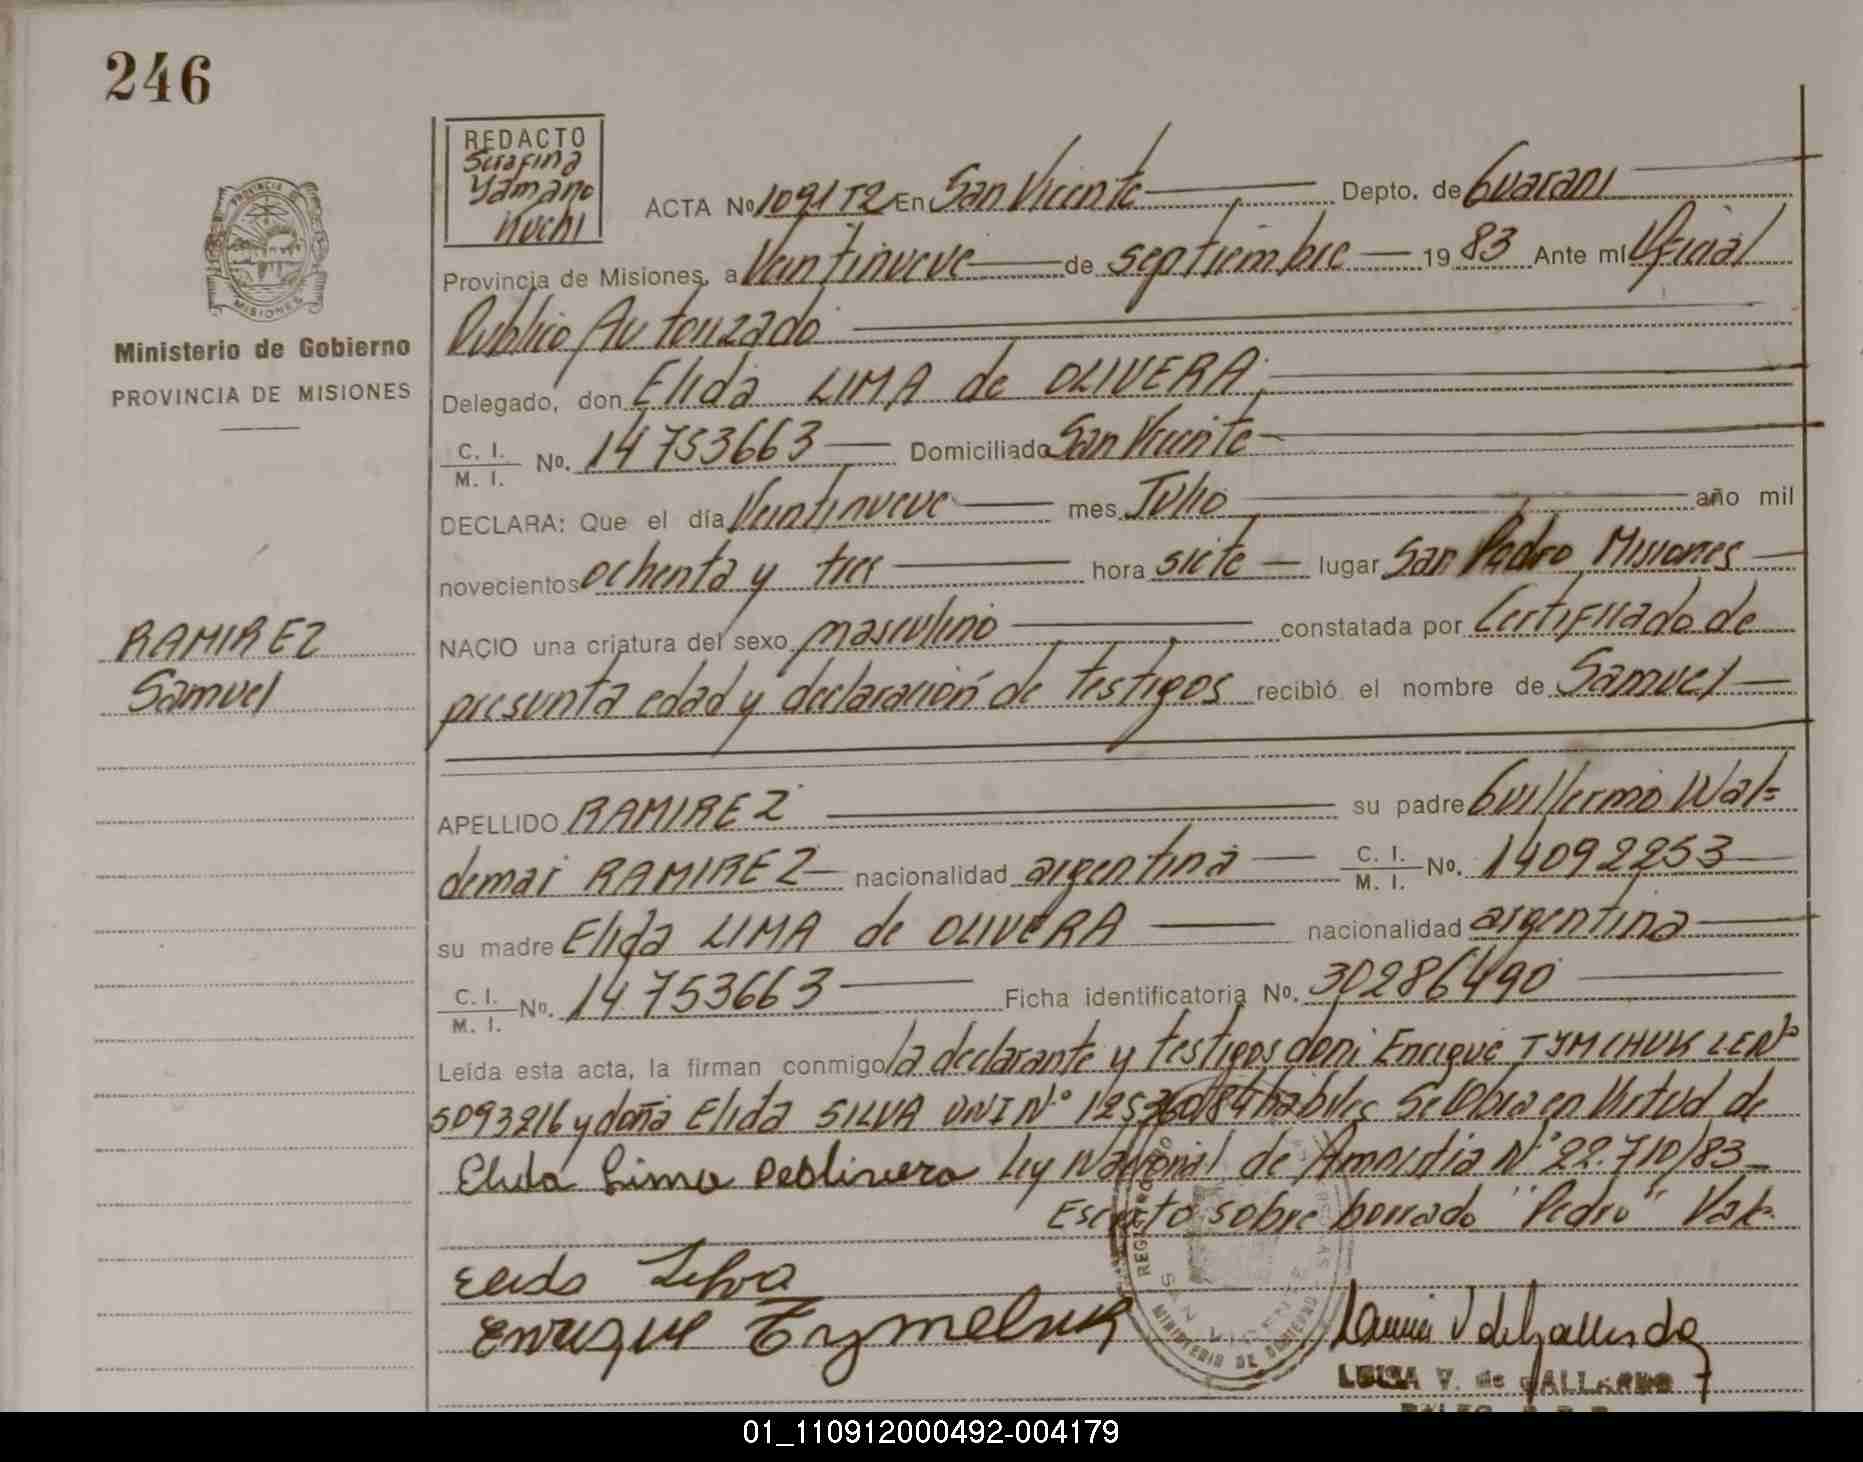 246
REDACTO
Serafina
Yamano
Kuchi
ACTA No 1091 T2 En San Vicente Depto. de Guarani
Provincia de Misiones, a Veintinueve de septiembre 19 83 Ante mí Oficial
Publico Autorizado
Delegado, don Elida LIMA de OLIVERA
C. I. / M. I. No. 14 753663 Domiciliado San Vicente
DECLARA: Que el día Veintinueve mes Julio año mil
novecientos ochenta y tres hora siete lugar San Pedro Misiones
NACIO una criatura del sexo masculino constatada por Certificado de
presunta edad y declaración de testigos recibió el nombre de Samuel
APELLIDO RAMIREZ su padre Guillermo Wal=
demar RAMIREZ nacionalidad argentina C. I. / M. I. No. 14092253
su madre Elida LIMA de OLIVERA nacionalidad argentina
C. I. / M. I. No. 14.753663 Ficha identificatoria No. 30286490
Leída esta acta, la firman conmigo la declarante y testigos don: Enrique TYMCHUK LE Nº
5093216 y doña Elida SILVA DNI Nº habiles Se Obra en Virtud de
Elida Lima Ley Nacional de Amnistia Nº 22.710/83
Escrito sobre borrado "Pedro" Vale.
Elida Silva
Enrique
LUISA V. de GALLARDO
PROVINCIA DE
MISIONES
Ministerio de Gobierno
PROVINCIA DE MISIONES
RAMIREZ
Samuel
SAN VICENTE
MINISTERIO DE GOBIERNO
01_110912000492-004179